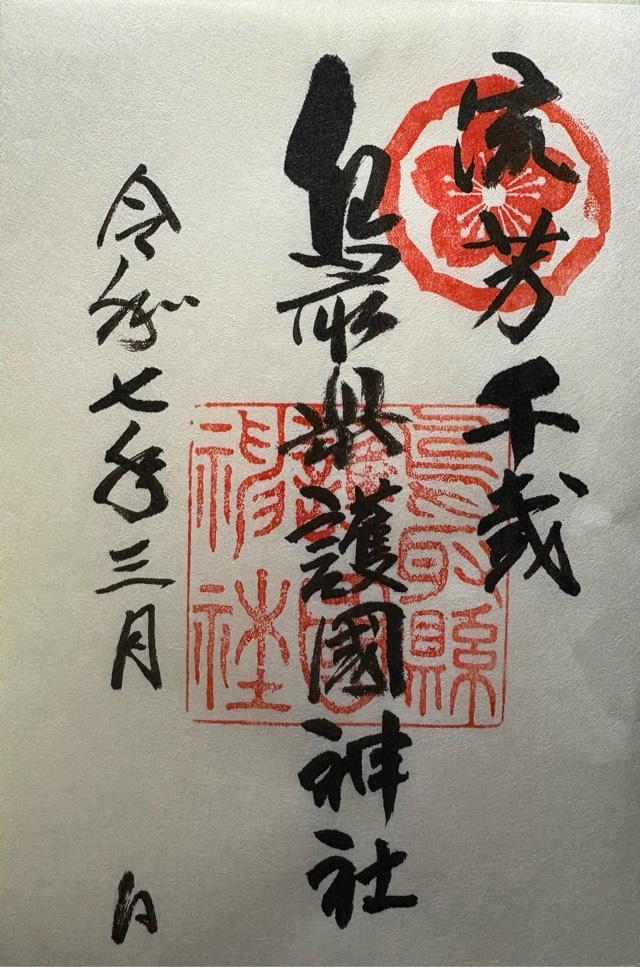 流芳千載
鳥取県護國神社
鳥取縣護國神社
令和七年三月 日